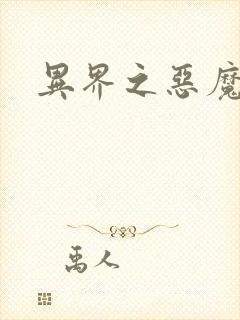 異界之惡魔
禹人